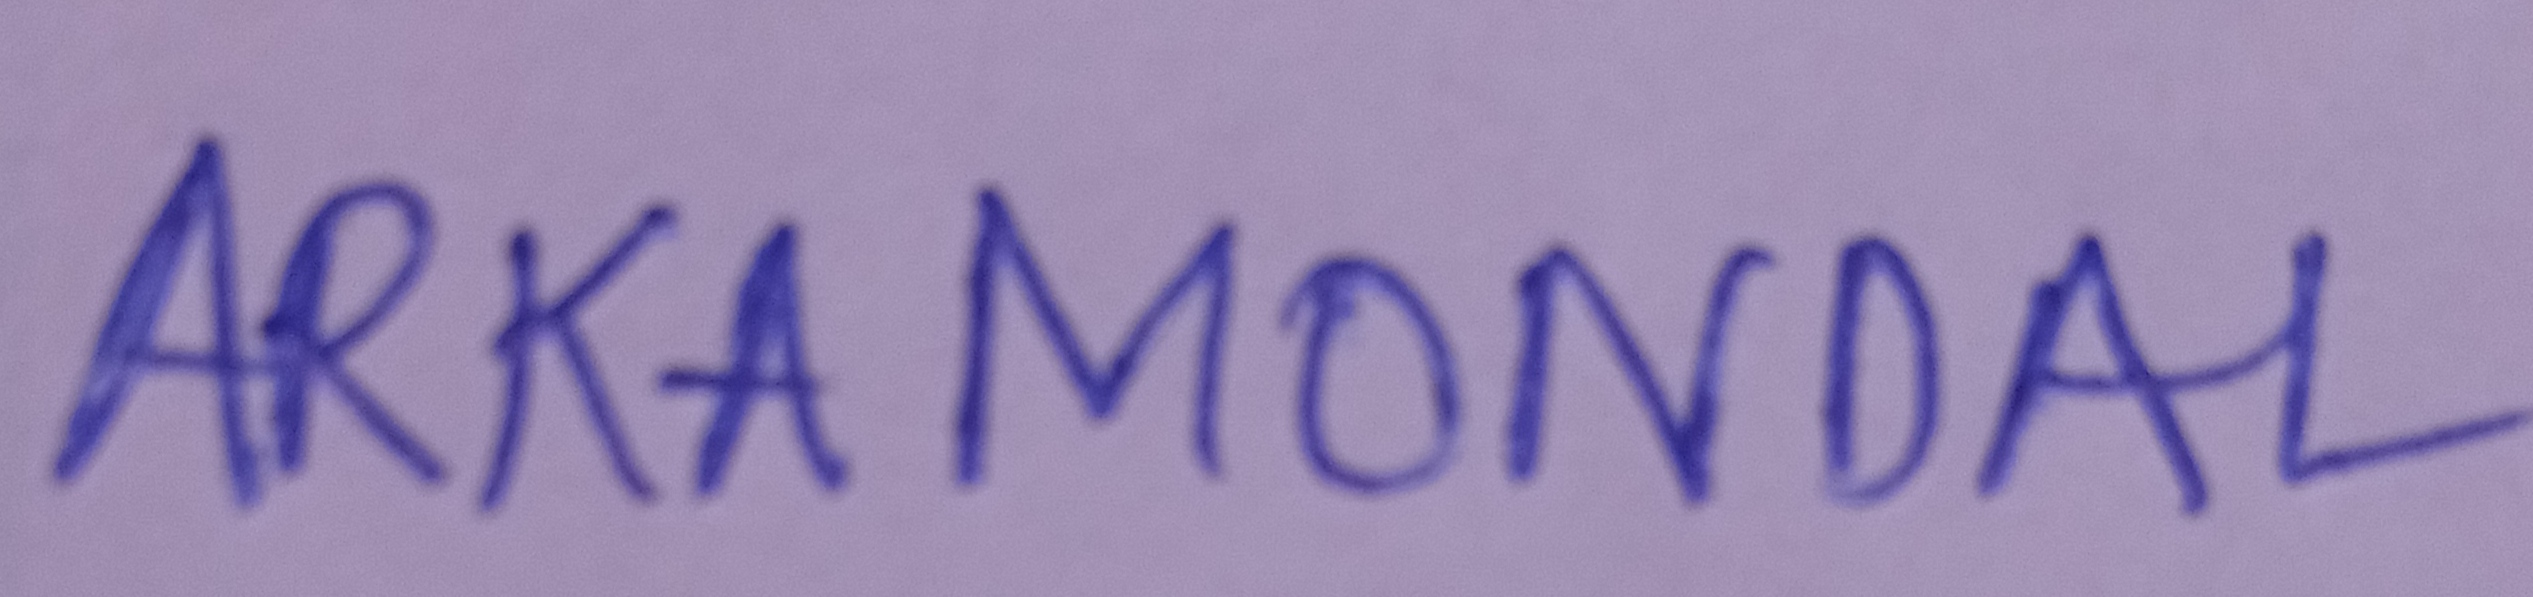 ARKA MONDAL